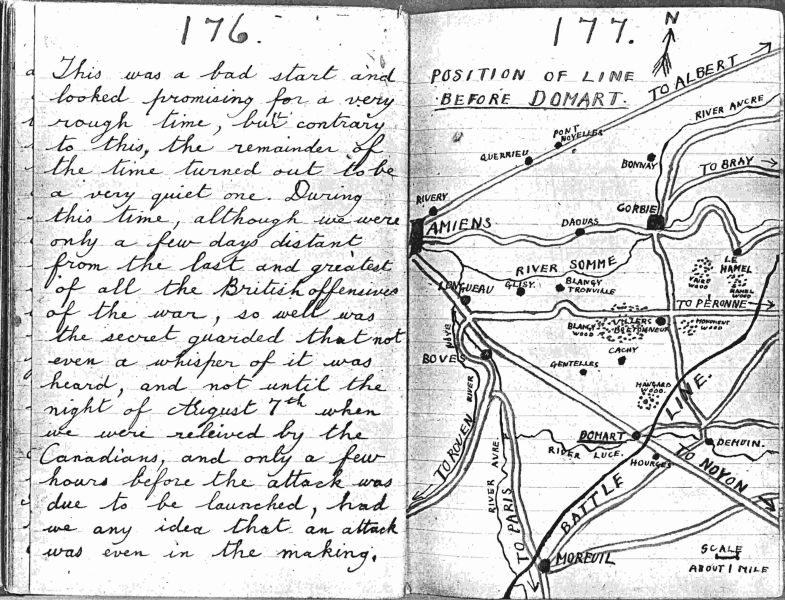 176.
This was a bad start and
looked promising for a very
rough time, but contrary
to this, the remainder of
the time turned out to be
a very quiet one. During
this time, although we were
only a few days distant
from the last and greatest
of all the British offensives
of the war, so well was
the secret guarded that not
even a whisper of it was
heard, and not until the
night of August 7th when
we were releived by the
Canadians, and only a few
hours before the attack was
due to be launched, had
we any idea that an attack
was even in the making.
177.
N
POSITION OF LINE
BEFORE DOMART.
TO ALBERT
RIVER ANCRE
PONT
NOYELLES
QUERRIEU
BONNAY
TO BRAY
RIVERY
CORBIE
AMIENS
DAOURS
RIVER SOMME
LE
HAMEL
VAIRE
WOOD
HAMEL
WOOD
LONGUEAU
GLISY
BLANGY
TRONVILLE
TO PERONNE
BLANGY
WOOD
VILLERS
BRETONNEUX
MONUMENT
WOOD
BOVES
CACHY
GENTELLES
HANGARD
WOOD
RIVER
LINE.
DOMART
DEMUIN.
RIVER LUCE.
HOURGES
TO ROUEN
RIVER AVRE.
TO NOYON
BATTLE
TO PARIS
MOREUIL
SCALE
ABOUT 1 MILE